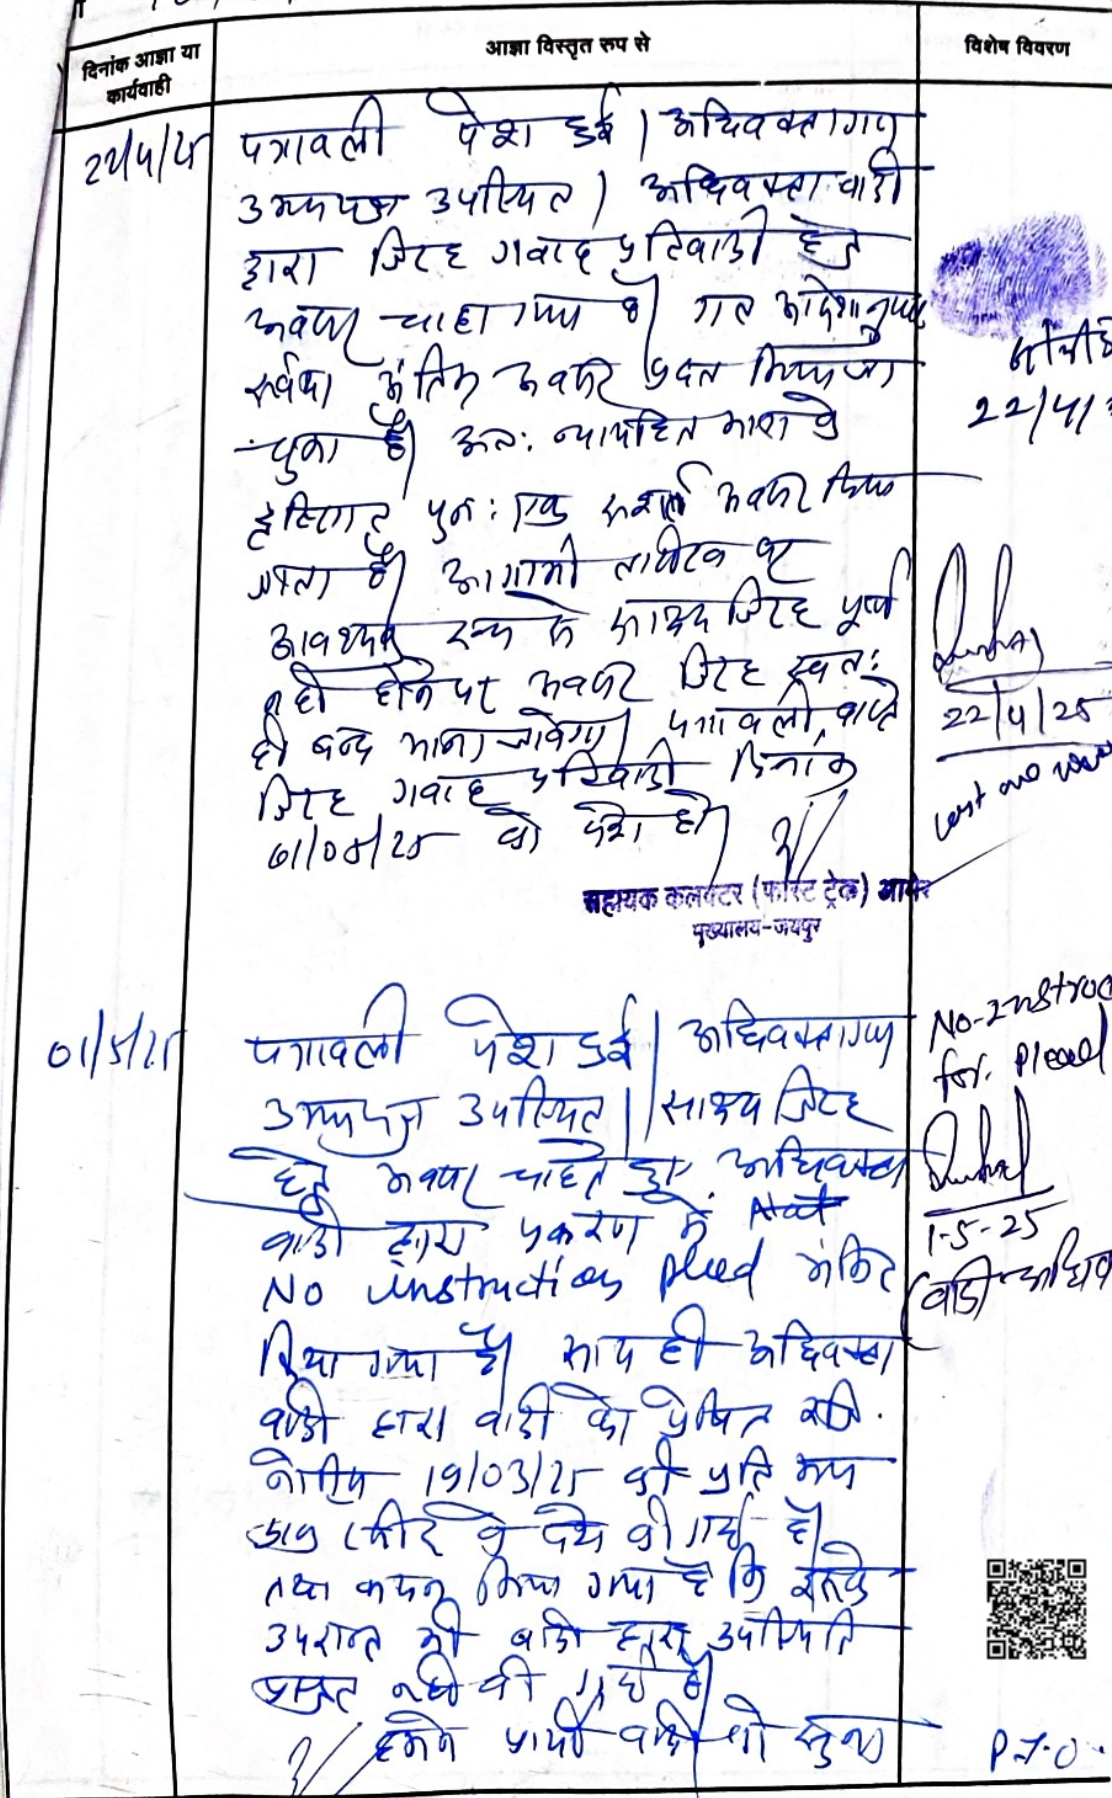 दिनांक आज्ञा या
कार्यवाही
आज्ञा विस्तृत रूप से
विशेष विवरण
22/4/25
पत्रावली पेश हुई। अधिवक्तागण
उभयपक्ष उपस्थित। अधिवक्ता वादी
द्वारा जिरह गवाह प्रतिवादी हेतु
अवसर चाहा गया है। गत आदेशानुसार
सर्वथा अंतिम अवसर प्रदत्त किया जा
चुका है। अतः न्यायहित
पुनः एक अवसर दिया
जाता है। आगामी तारीख पर
आवश्यक रूप से साक्ष्य जिरह पूर्ण
नहीं होने पर अवसर जिरह स्वतः
ही बन्द माना जावेगा। पत्रावली वास्ते
जिरह गवाह प्रतिवादी दिनांक
01/05/25 को पेश हो।
सहायक कलक्टर (फास्ट ट्रेक) आमेर
मुख्यालय-जयपुर
22/4/
22/4/25
01/5/25
पत्रावली पेश हुई। अधिवक्तागण
उभयपक्ष उपस्थित। साक्ष्य जिरह
हेतु अवसर चाहते हुए अधिवक्ता
वादी द्वारा प्रकरण में
No instruction pleed अंकित
किया गया है। साथ ही अधिवक्ता
वादी द्वारा वादी को प्रेषित रजि.
नोटिस 19/03/25 की प्रति मय
रसीद पेश की गई है।
तथा कथन किया गया है कि इसके
उपरान्त भी वादी द्वारा उपस्थिति
नहीं दी गई है।
हमने प्रार्थी वादी को सुना
No-Instruc
for. Plead
1-5-25
(वादी अधिव
P.T.O.